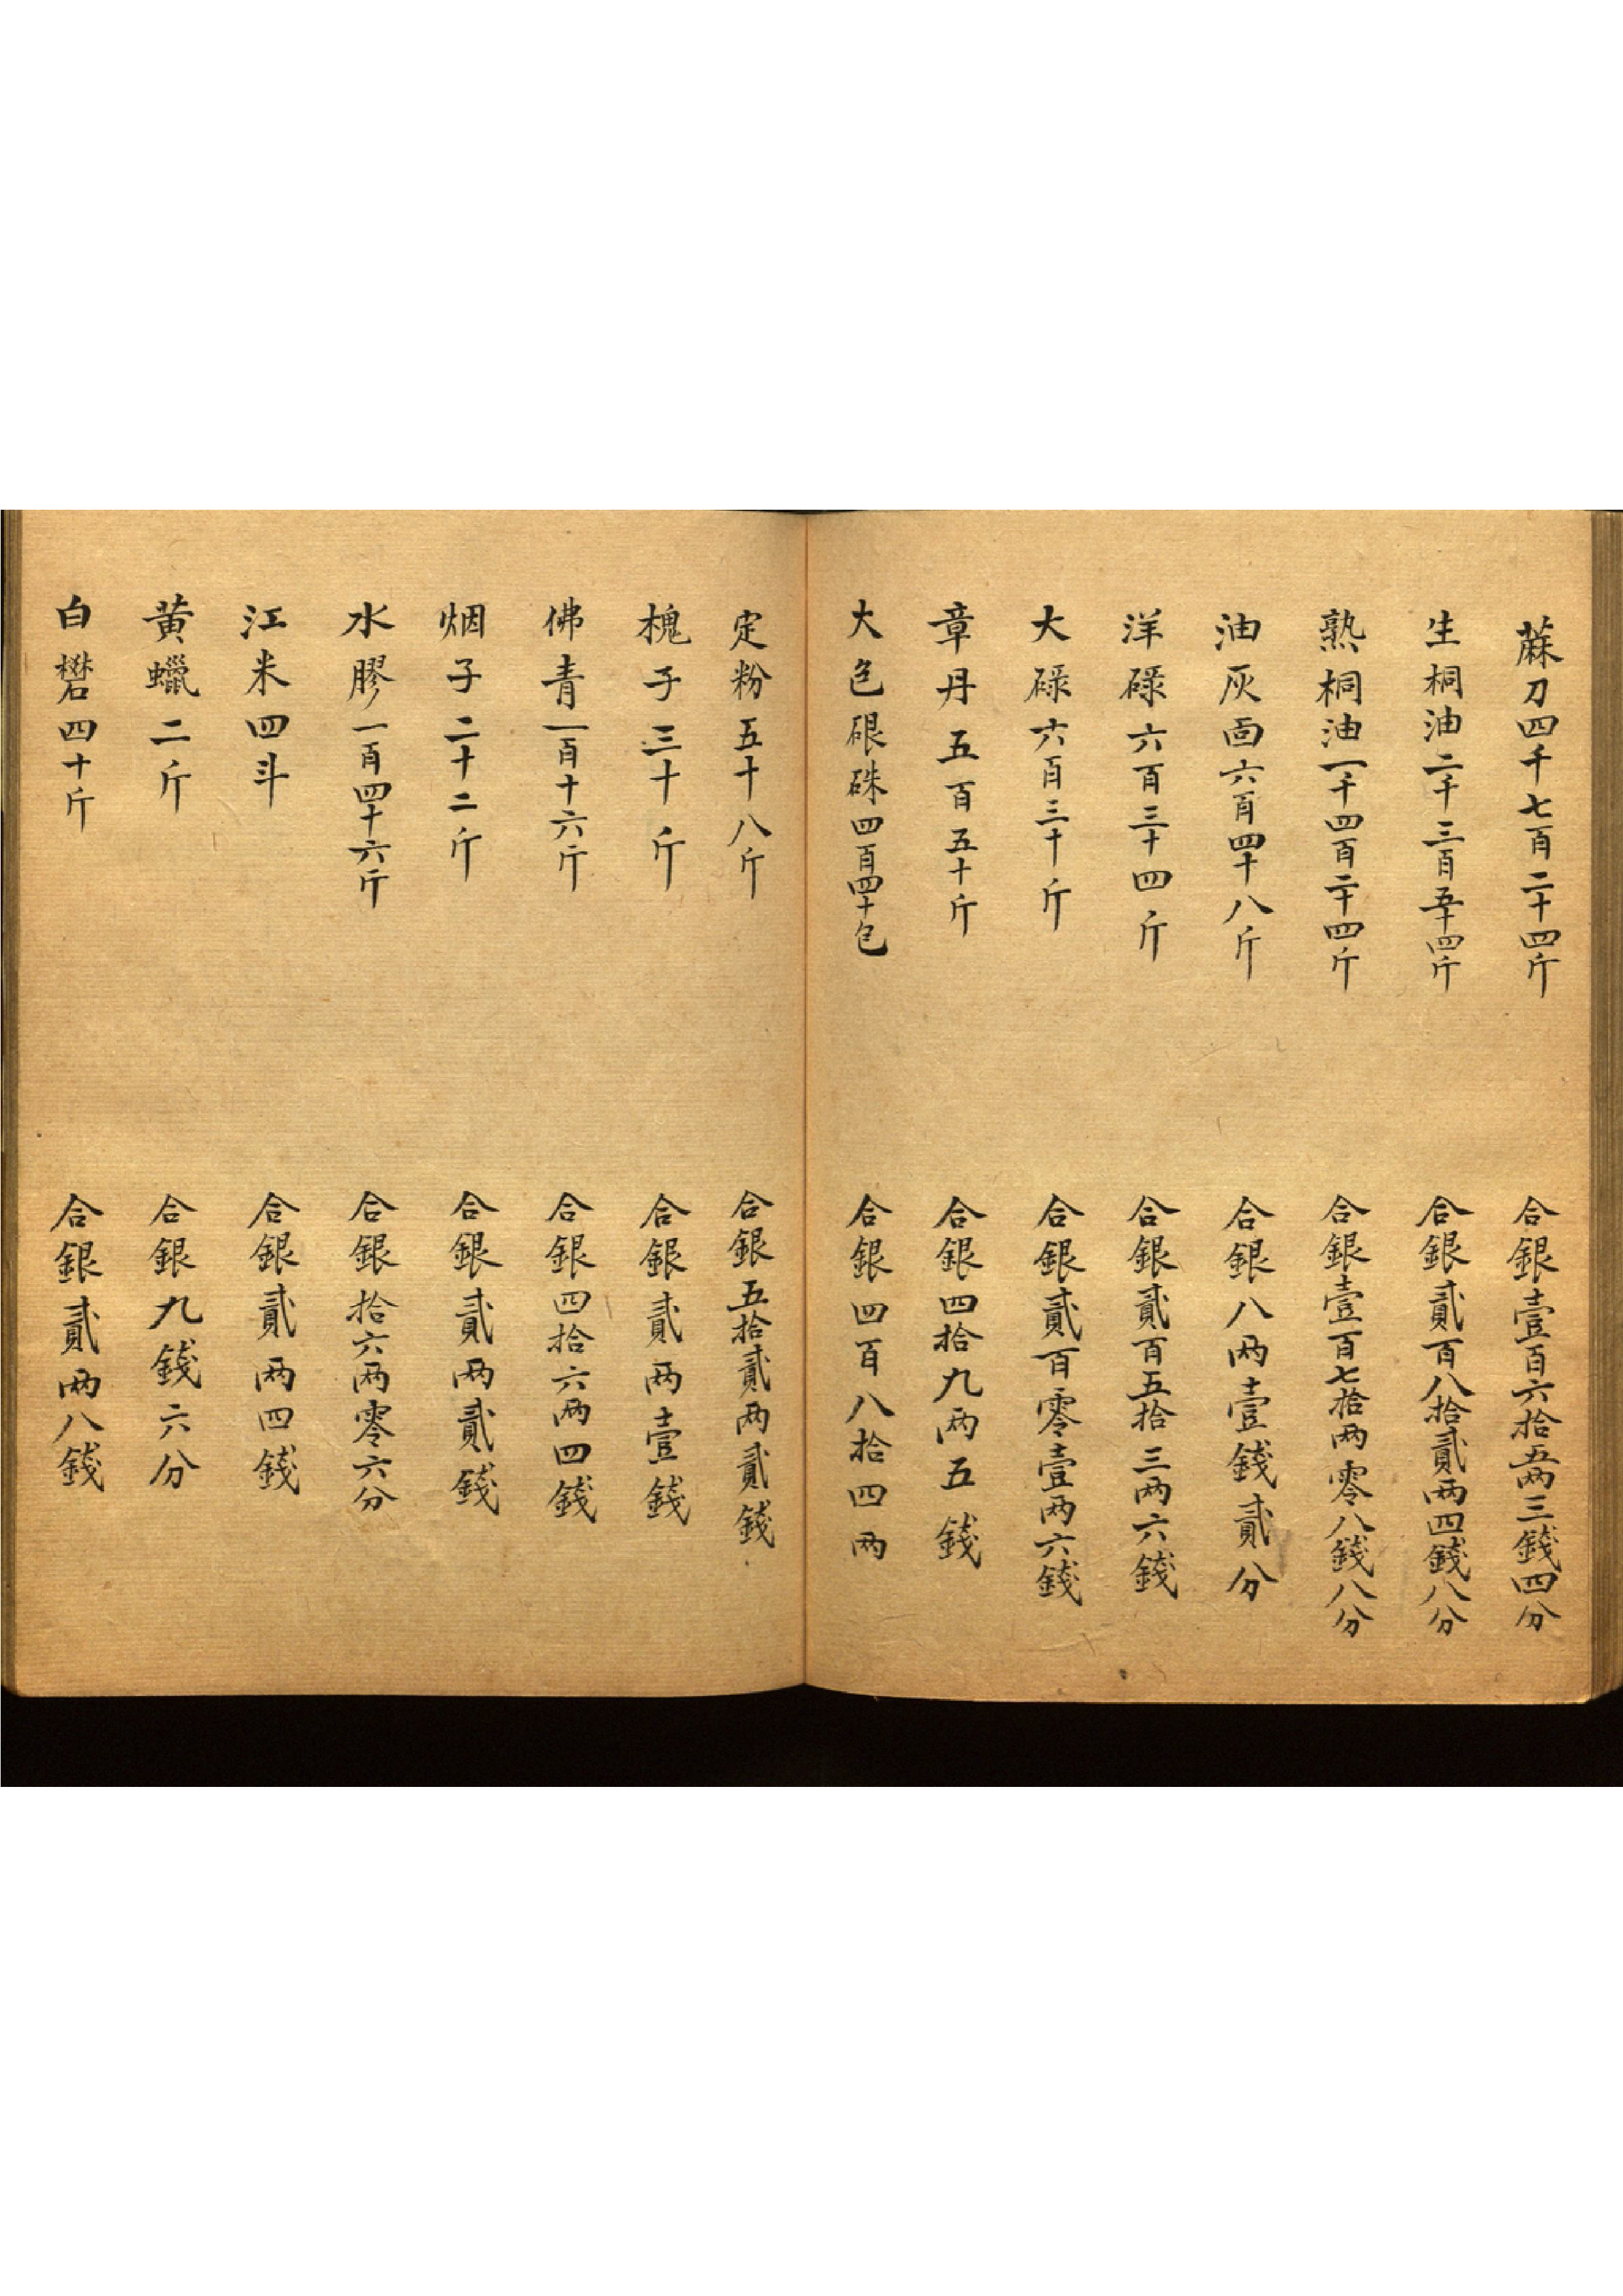 蔴刀四千七百二十四斤 合銀壹百六拾五两三錢四分
生桐油二千三百五十四斤 合銀貳百八拾貳两四錢八分
熟桐油一千四百二十四斤 合銀壹百七拾两零八錢八分
油灰面六百四十八斤 合銀八两壹錢貳分
洋碌六百三十四斤 合銀貳百五拾三两六錢
大碌六百三十斤 合銀貳百零壹两六錢
章丹五百五十斤 合銀四拾九两五錢
大色硍硃四百四十包 合銀四百八拾四两
定粉五十八斤 合銀五拾貳两貳錢
槐子三十斤 合銀貳两壹錢
佛青一百十六斤 合銀四拾六两四錢
烟子二十二斤 合銀貳两貳錢
水膠一百四十六斤 合銀拾六两零六分
江米四斗 合銀貳两四錢
黄蠟二斤 合銀九錢六分
白礬四十斤 合銀貳两八錢